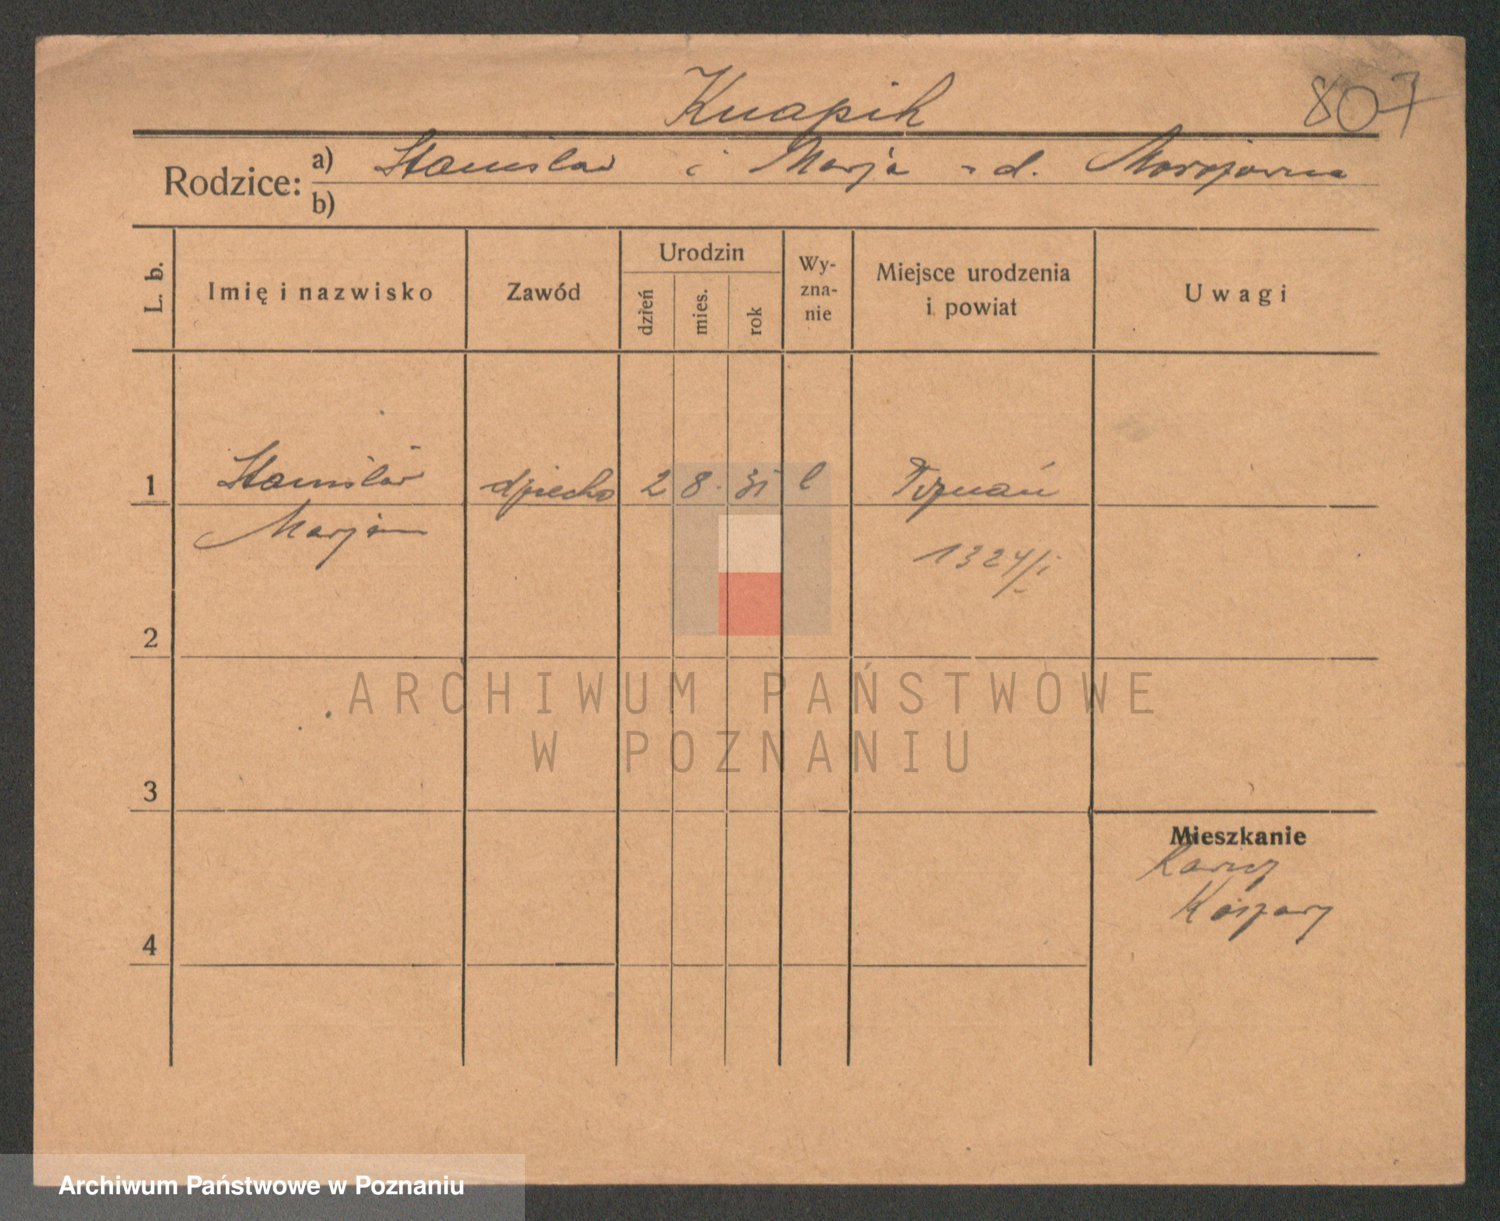 Knapik 807
Rodzice: a) Stanisław i Marja z d.
b)
L. b. Imię i nazwisko Zawód Urodzin dzień mies. rok Wy-zna-nie Miejsce urodzenia i powiat Uwagi
1 Stanisław dziecko 2 8. 31 Poznań
Marjan 1324/I
2
ARCHIWUM PAŃSTWOWE
W POZNANIU
3
Mieszkanie
4
Archiwum Państwowe w Poznaniu